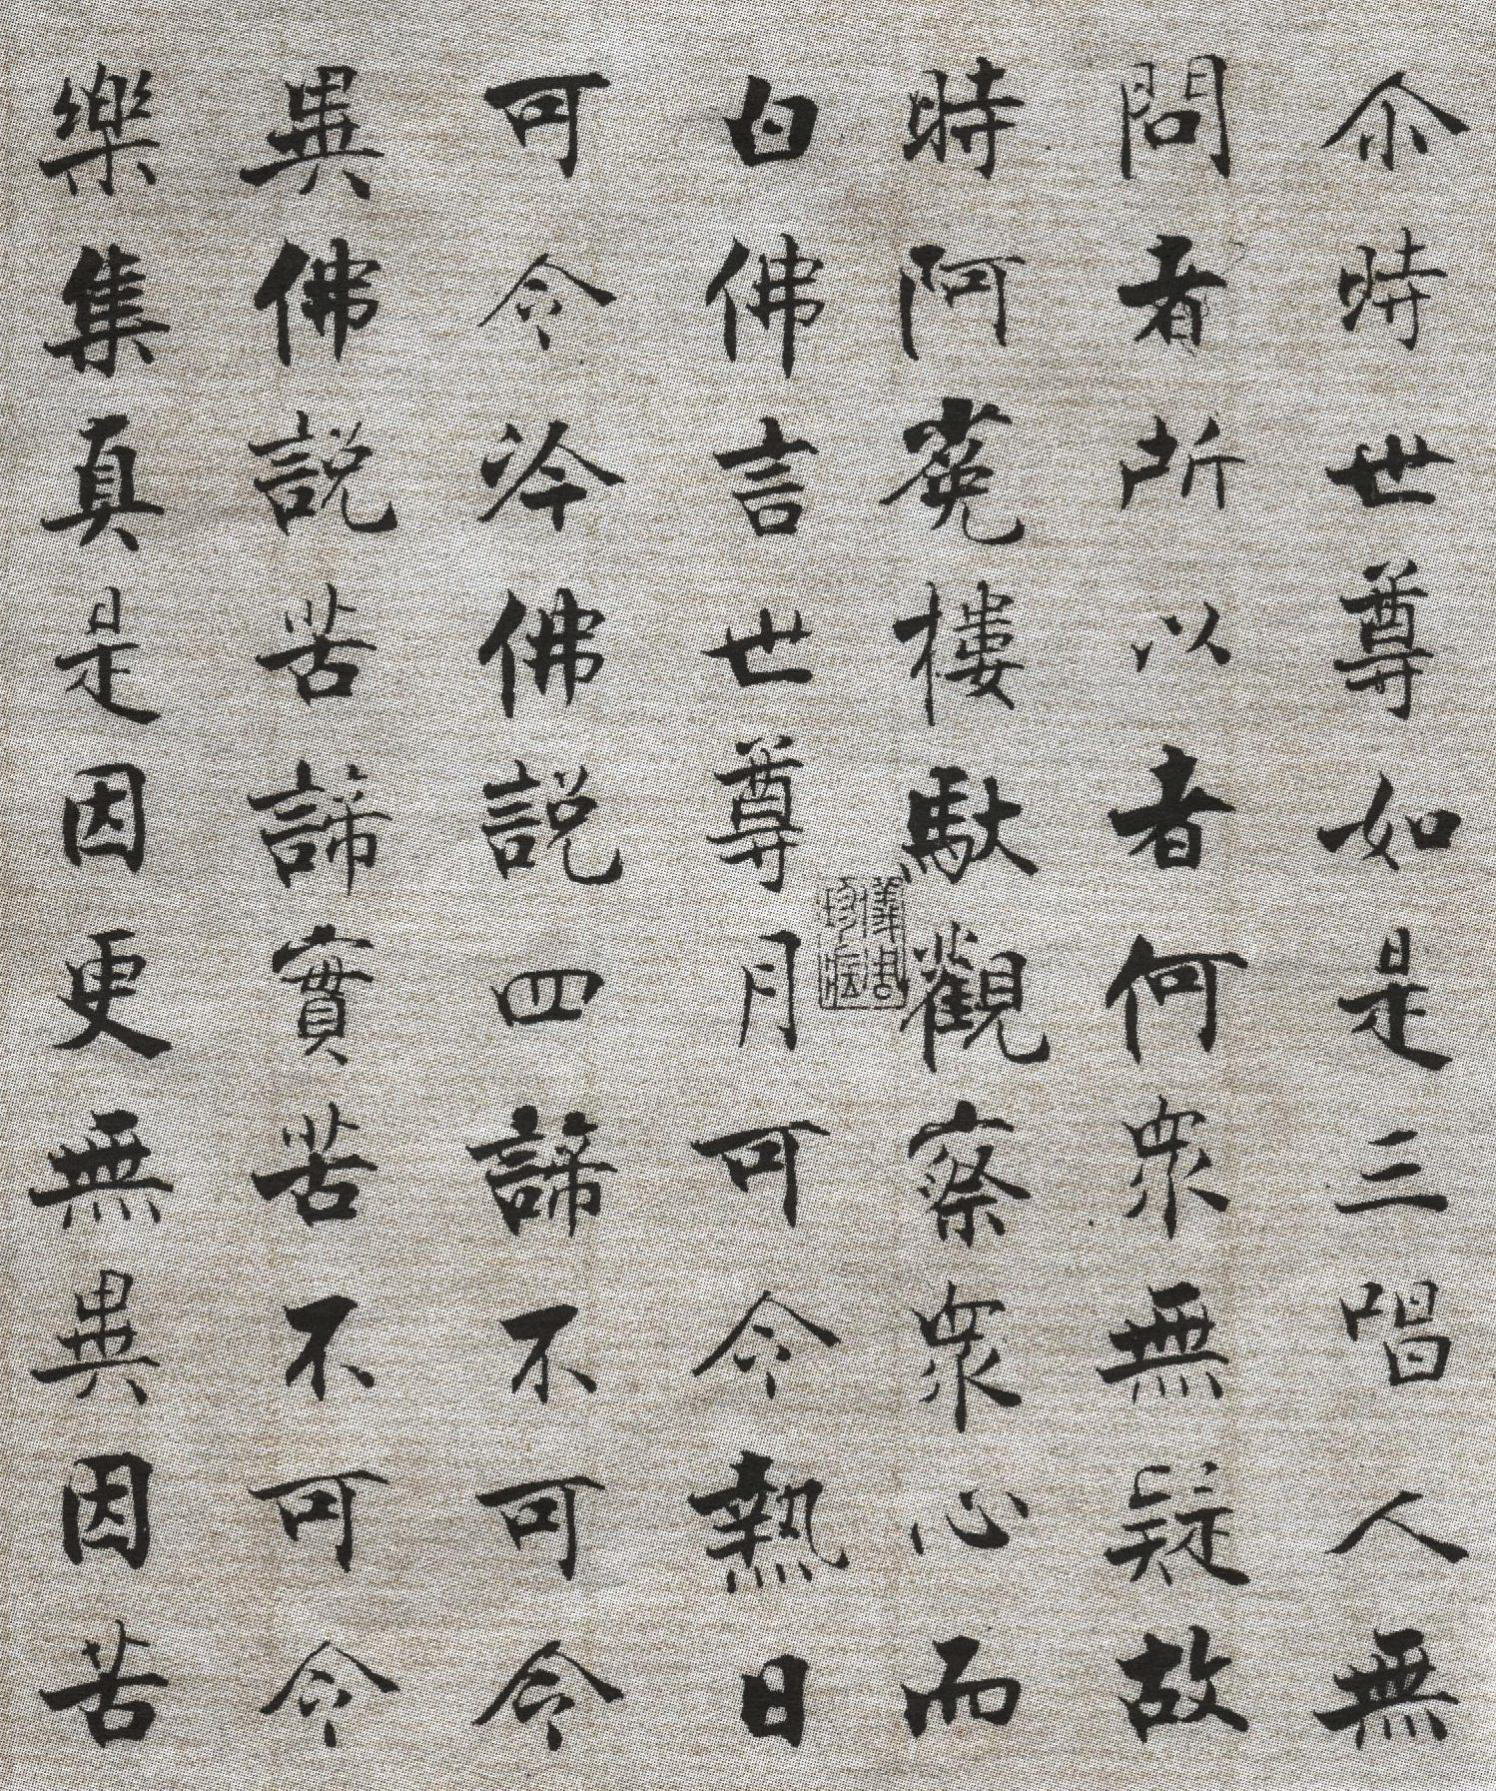 尒時世尊如是三唱人無
問者所以者何衆無疑故
時阿㝹樓馱觀察衆心而
白佛言世尊月可令熱日
可令冷佛說四諦不可令
異佛說苦諦實苦不可令
樂集真是因更無異因苦